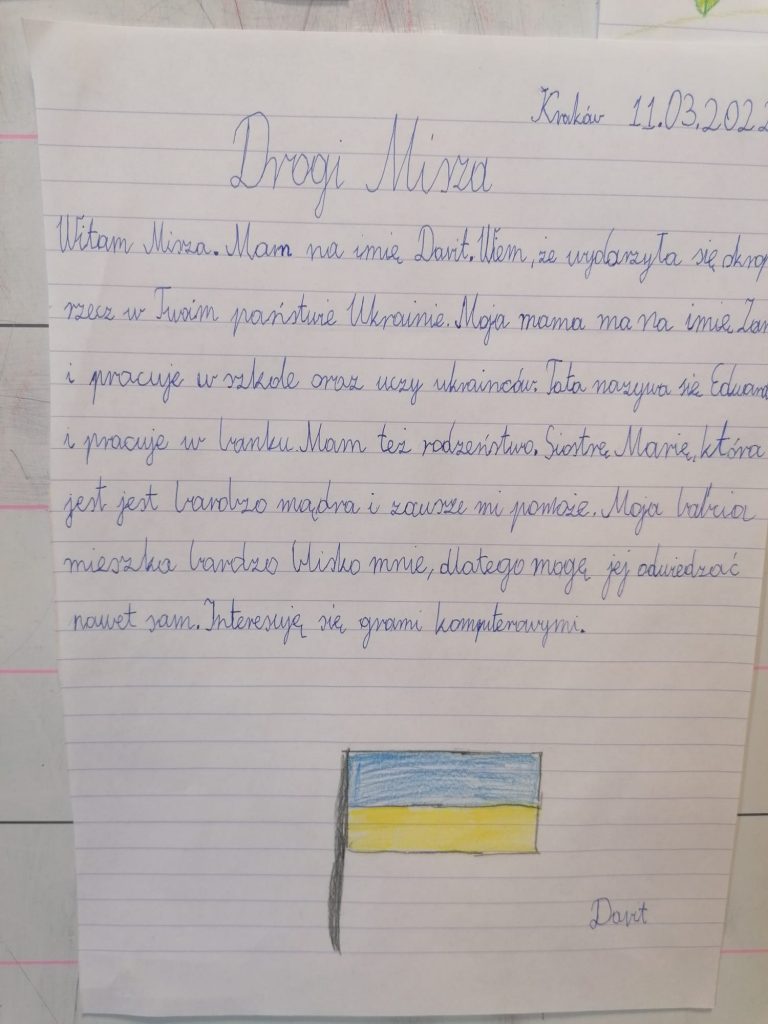 Kraków 11.03.2022
Drogi Misza
Witam Misza. Mam na imię Davit. Wiem, że wydarzyła się okrop
rzecz w Twoim państwie Ukrainie. Moja mama ma na imię Zan
i pracuje w szkole oraz uczy ukrainców. Tata nazywa się Eduard
i pracuje w banku. Mam też rodzeństwo. Siostrę Marię, która
jest jest bardzo mądra i zawsze mi pomoże. Moja babcia
mieszka bardzo blisko mnie, dlatego mogę jej odwiedzać
nawet sam. Interesuję się grami komputerowymi.
Davit